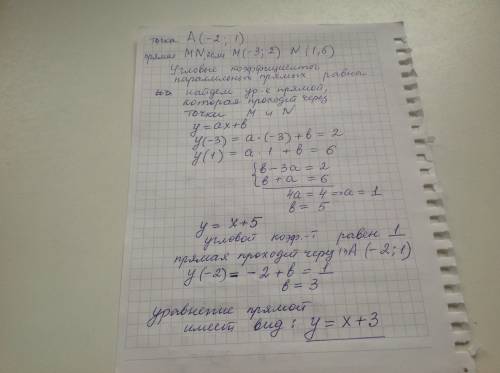 точка A(-2; 1)
прямая MN, если M(-3; 2) N(1,6)
Угловые коэффициенты
параллельных прямых равны
найдем ур-е прямой,
которая проходит через
точки M и N
y = ax+b
y(-3) = a·(-3) + b = 2
y(1) = a·1 + b = 6
{b - 3a = 2
b + a = 6
4a = 4 => a = 1
b = 5
y = x+5
угловой коэф.-т равен 1
прямая проходит через A(-2; 1)
y(-2) = -2 + b = 1
b = 3
уравнение прямой
имеет вид: y = x+3